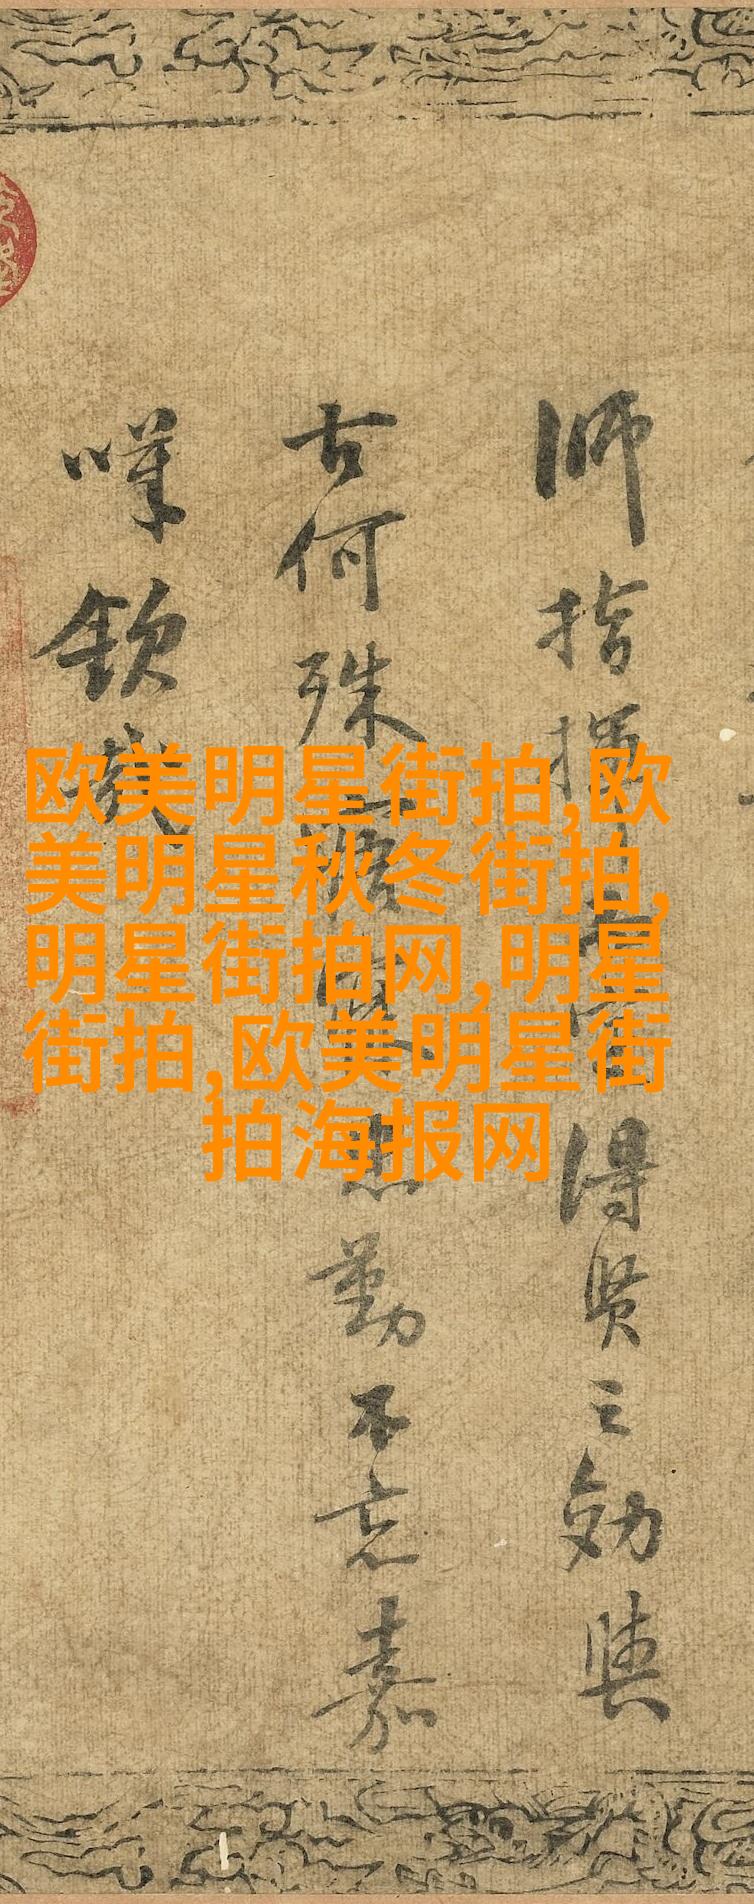 師指揮
得賢之効與
古何殊
勤不忘嘉
嘆欽哉
欧美明星街拍,欧
美明星秋冬街拍,
明星街拍网,明星
街拍,欧美明星街
拍海报网